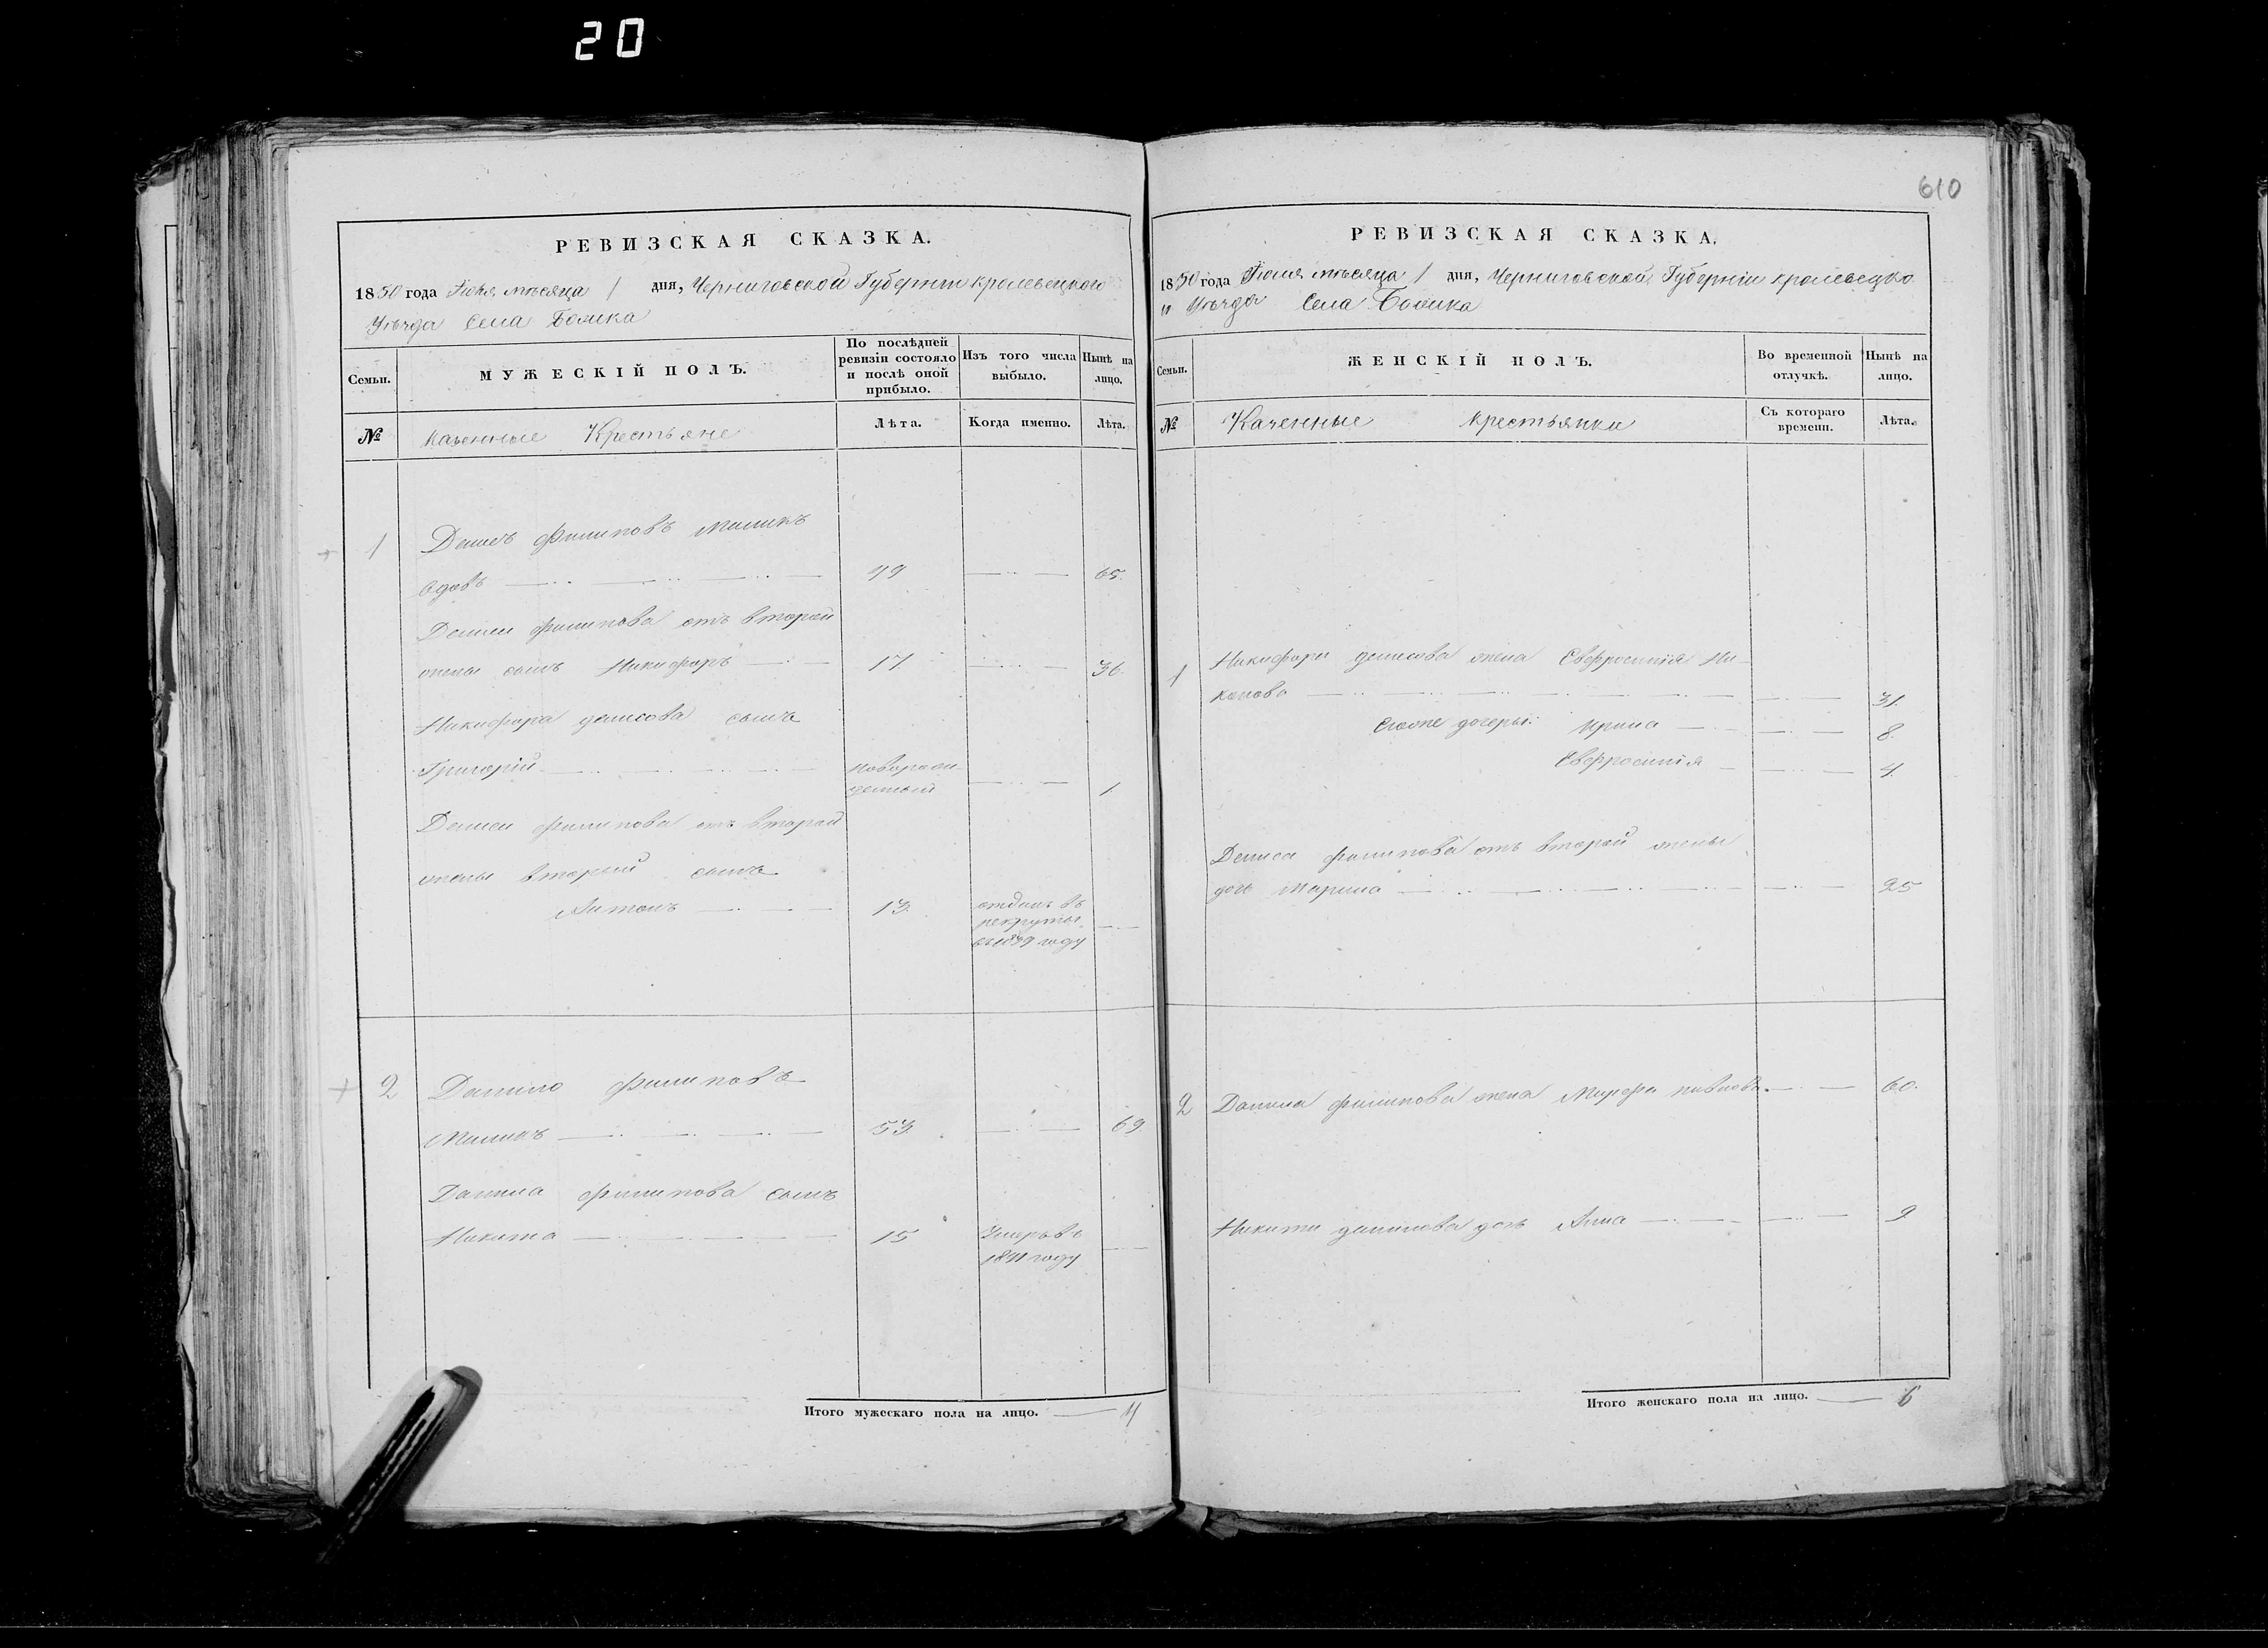 20
610
РЕВИЗСКАЯ СКАЗКА.
1850 года Іюля мѣсяца 1 дня, Черниговской Губерніи Кролевецкого
Уѣзда Села
МУЖЕСКІЙ ПОЛЪ.
Семьи.
По послѣдней ревизіи состояло и послѣ оной прибыло.
Изъ того числа выбыло.
Нынѣ на лицо.
№
Казенные Крестьяне
Лѣта.
Когда именно.
Лѣта.
1
Денисъ Филиповъ
вдовъ 49 65.
Дениса Филипова отъ второй
жены сынъ Никифоръ 17 36.
Никифора Денисова сынъ
Григорій новорожденный 1
Дениса Филипова отъ второй
жены второй сынъ
Антонъ 13. отданъ въ рекруты году
2
Данило Филиповъ
53. 69
Данила Филипова сынъ
Никита 15 Умеръ въ 1841 году
Итого мужескаго пола на лицо. 4
РЕВИЗСКАЯ СКАЗКА.
1850 года Іюля мѣсяца 1 дня, Черниговской Губерніи Кролевецко
го Уѣзда Села
Семьи.
ЖЕНСКІЙ ПОЛЪ.
Во временной отлучкѣ.
Нынѣ на лицо.
№
Казенные крестьянки
Съ котораго времени.
Лѣта.
1
Никифора Денисова жена Евфросинія Ни-
канова 31.
дочеры: Ирина 8.
Евфросинія 4.
Дениса Филипова отъ второй жены
дочь Марина 25
2
Данила Филипова жена 60.
Никиты Данилова дочь Анна 9
Итого женскаго пола на лицо. 6